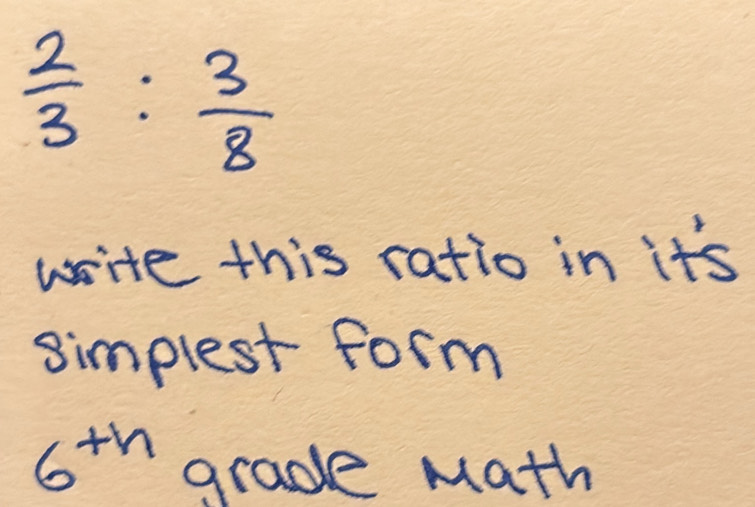 2/3 : 3/8
write this ratio in it's
simplest form
6th grade Math